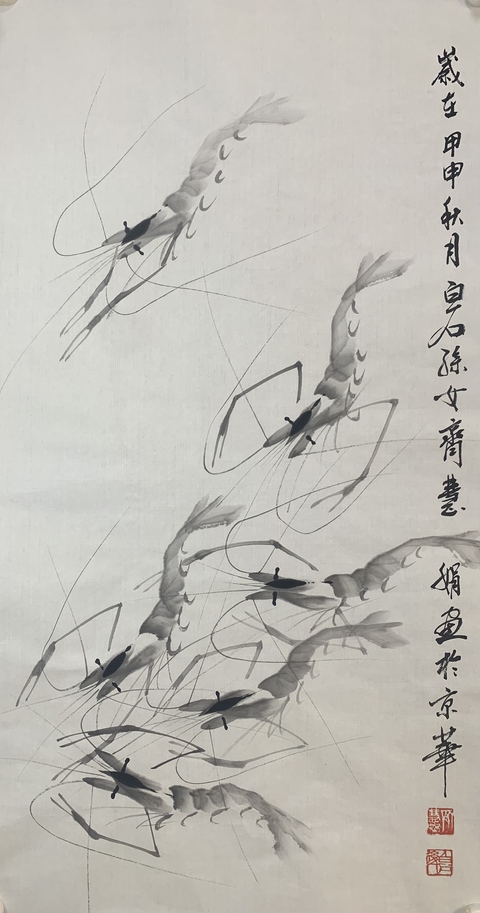 歲在甲申秋月白石孫女齊慧娟畫於京華